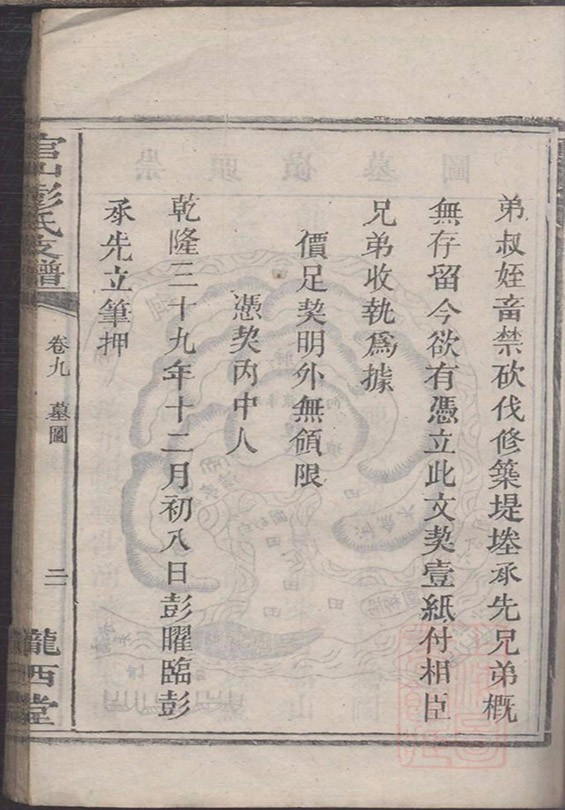 弟叔姪畜禁砍伐修築堤塋承先兄弟概
無存留今欲有憑立此文契壹紙付相臣
兄弟收執爲據
價足契明外無領限
憑契內中人
乾隆三十九年十二月初八日彭曜臨彭
承先立筆押
官山彭氏支譜
卷九
墓圖
二
隴西堂